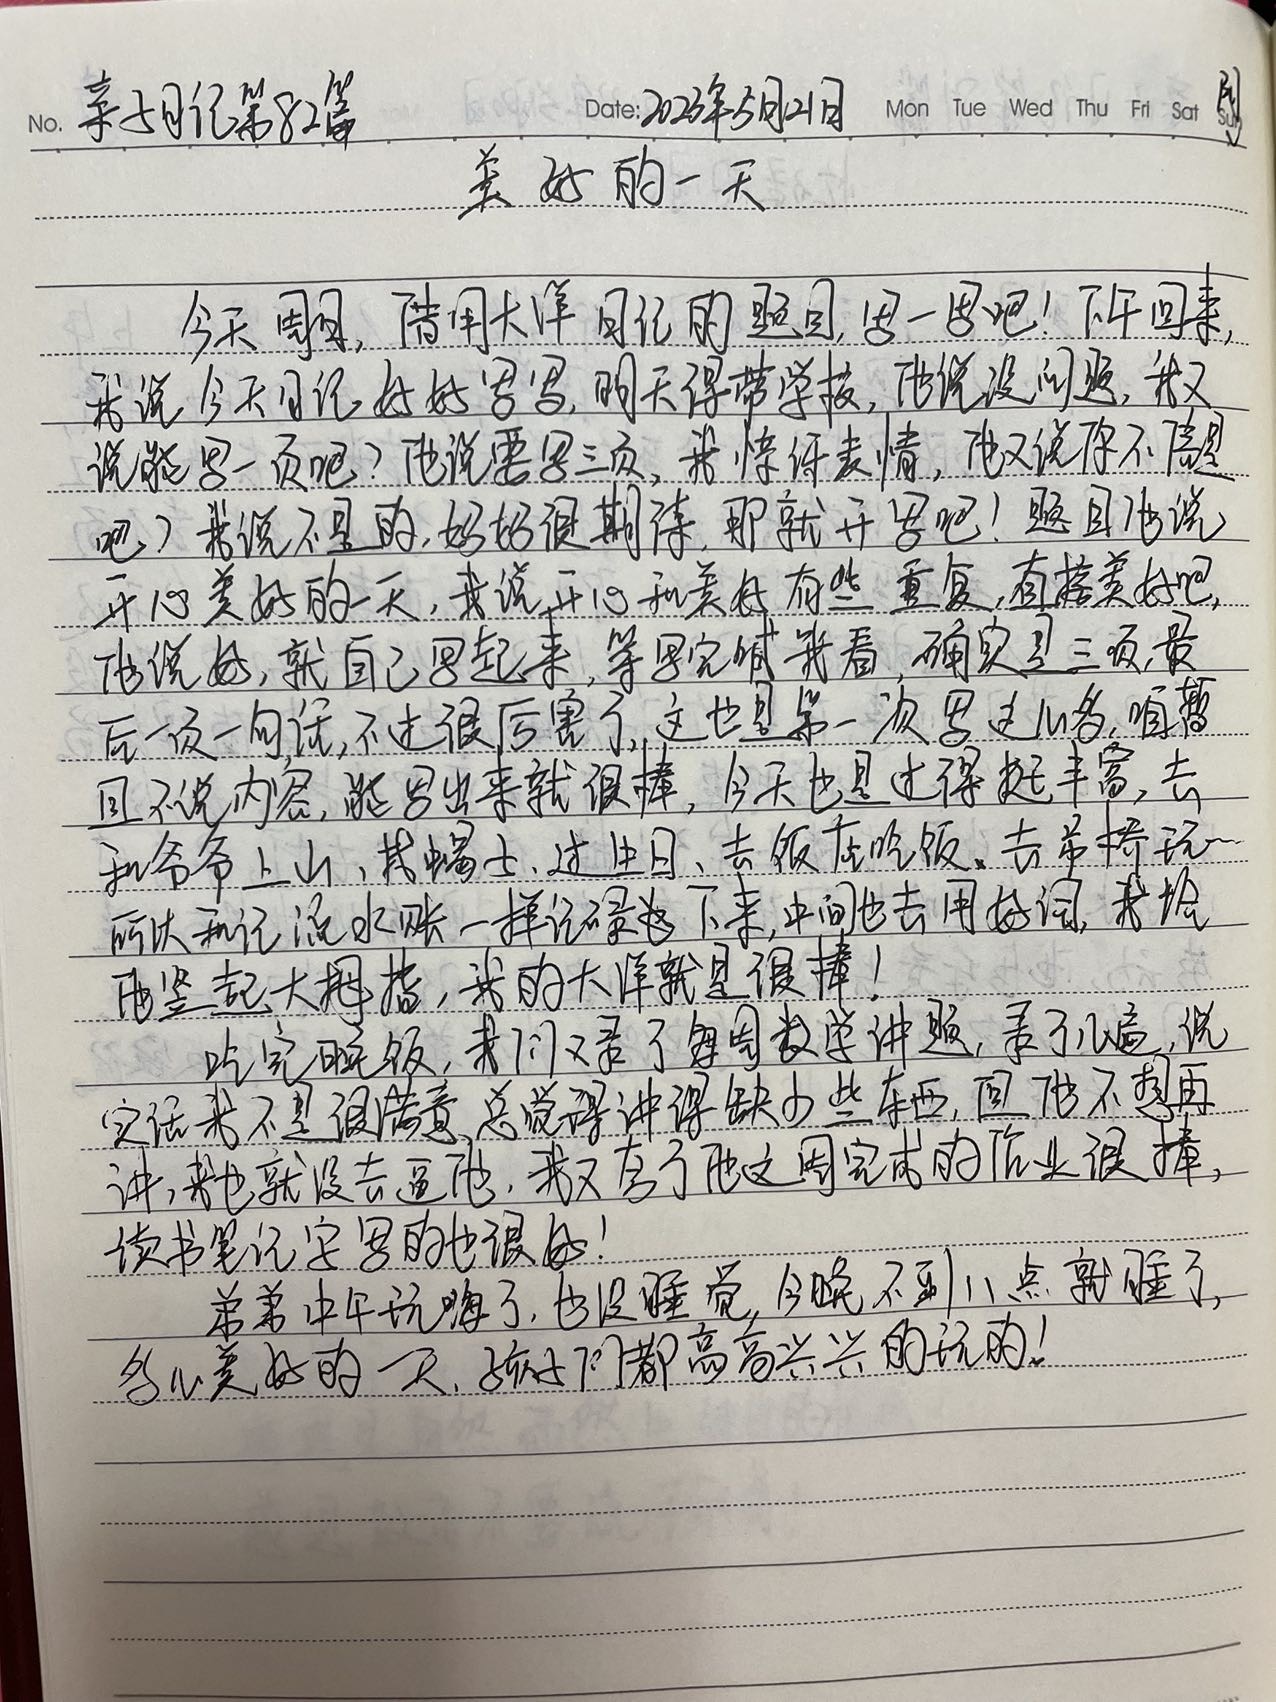 No. 亲子日记第82篇 Date: 2023年5月21日 Mon Tue Wed Thu Fri Sat Sun
美好的一天
今天周日,借用大洋日记的题目,写一写吧!下午回来,
我说今天日记好好写写,明天得带学校,他说没问题,我又
说能写一页吧?他说要写三页,我惊讶表情,他又说你不信是
吧?我说不是的,妈妈很期待,那就开写吧!题目他说
开心美好的一天,我说开心和美好有些重复,直接美好吧,
他说好,就自己写起来,等写完喊我看,确实是三页,最
后一页一句话,不过很厉害了,这也是第一次写这么多,咱暂
且不说内容,能写出来就很棒,今天也是过得挺丰富,去
和爷爷上山、找蝎子、过生日、去饭店吃饭、去吊桥玩~
所以和记流水账一样记录下来,中间也去用好词,我给
他竖起大拇指,我的大洋就是很棒!
吃完晚饭,我们又录了每周数学讲题,录了几遍,说
实话我不是很满意,总觉得讲得缺少些东西,但他不想再
讲,我也就没去逼他,我又看了他这周完成的作业很棒,
读书笔记字写的也很好!
弟弟中午玩嗨了,也没睡觉,今晚不到八点就睡了,
多么美好的一天,孩子们都高高兴兴的玩的!